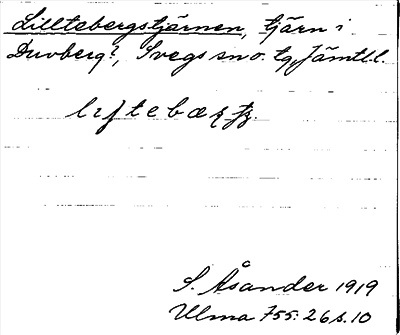 Lilltebergstjärnen, tjärn i
Duvberg?, Svegs sn o. tg, Jämtl.l.
S. Åsander 1919
Ulma 755: 26 s. 10